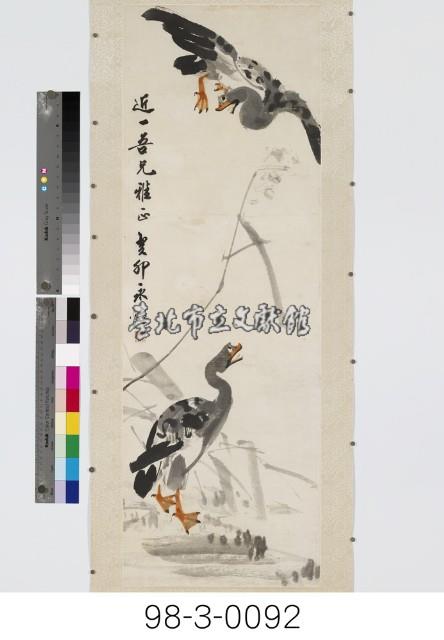 近一吾兄雅正 癸卯永
臺北市立文獻館
98-3-0092